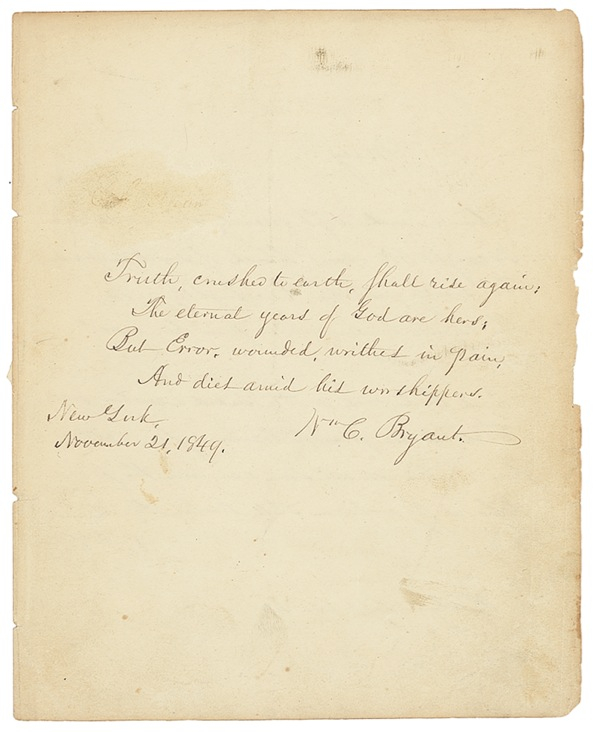 Truth, crushed to earth, shall rise again;
The eternal years of God are hers;
But Error, wounded, writhes in pain,
And dies amid his worshippers.
New York,
November 21, 1849.
Wm C. Bryant.